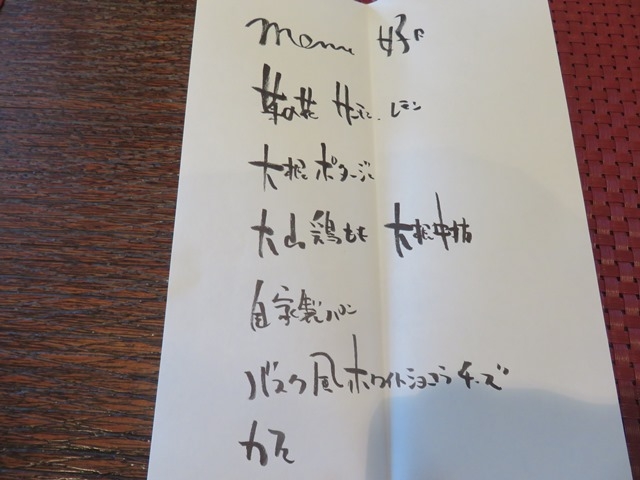 menu 好日
菜の花 サーモン レモン
大根 ポタージュ
大山鶏もも 大根 牛蒡
自家製パン
バスク風ホワイトショコラチーズ
カフェ